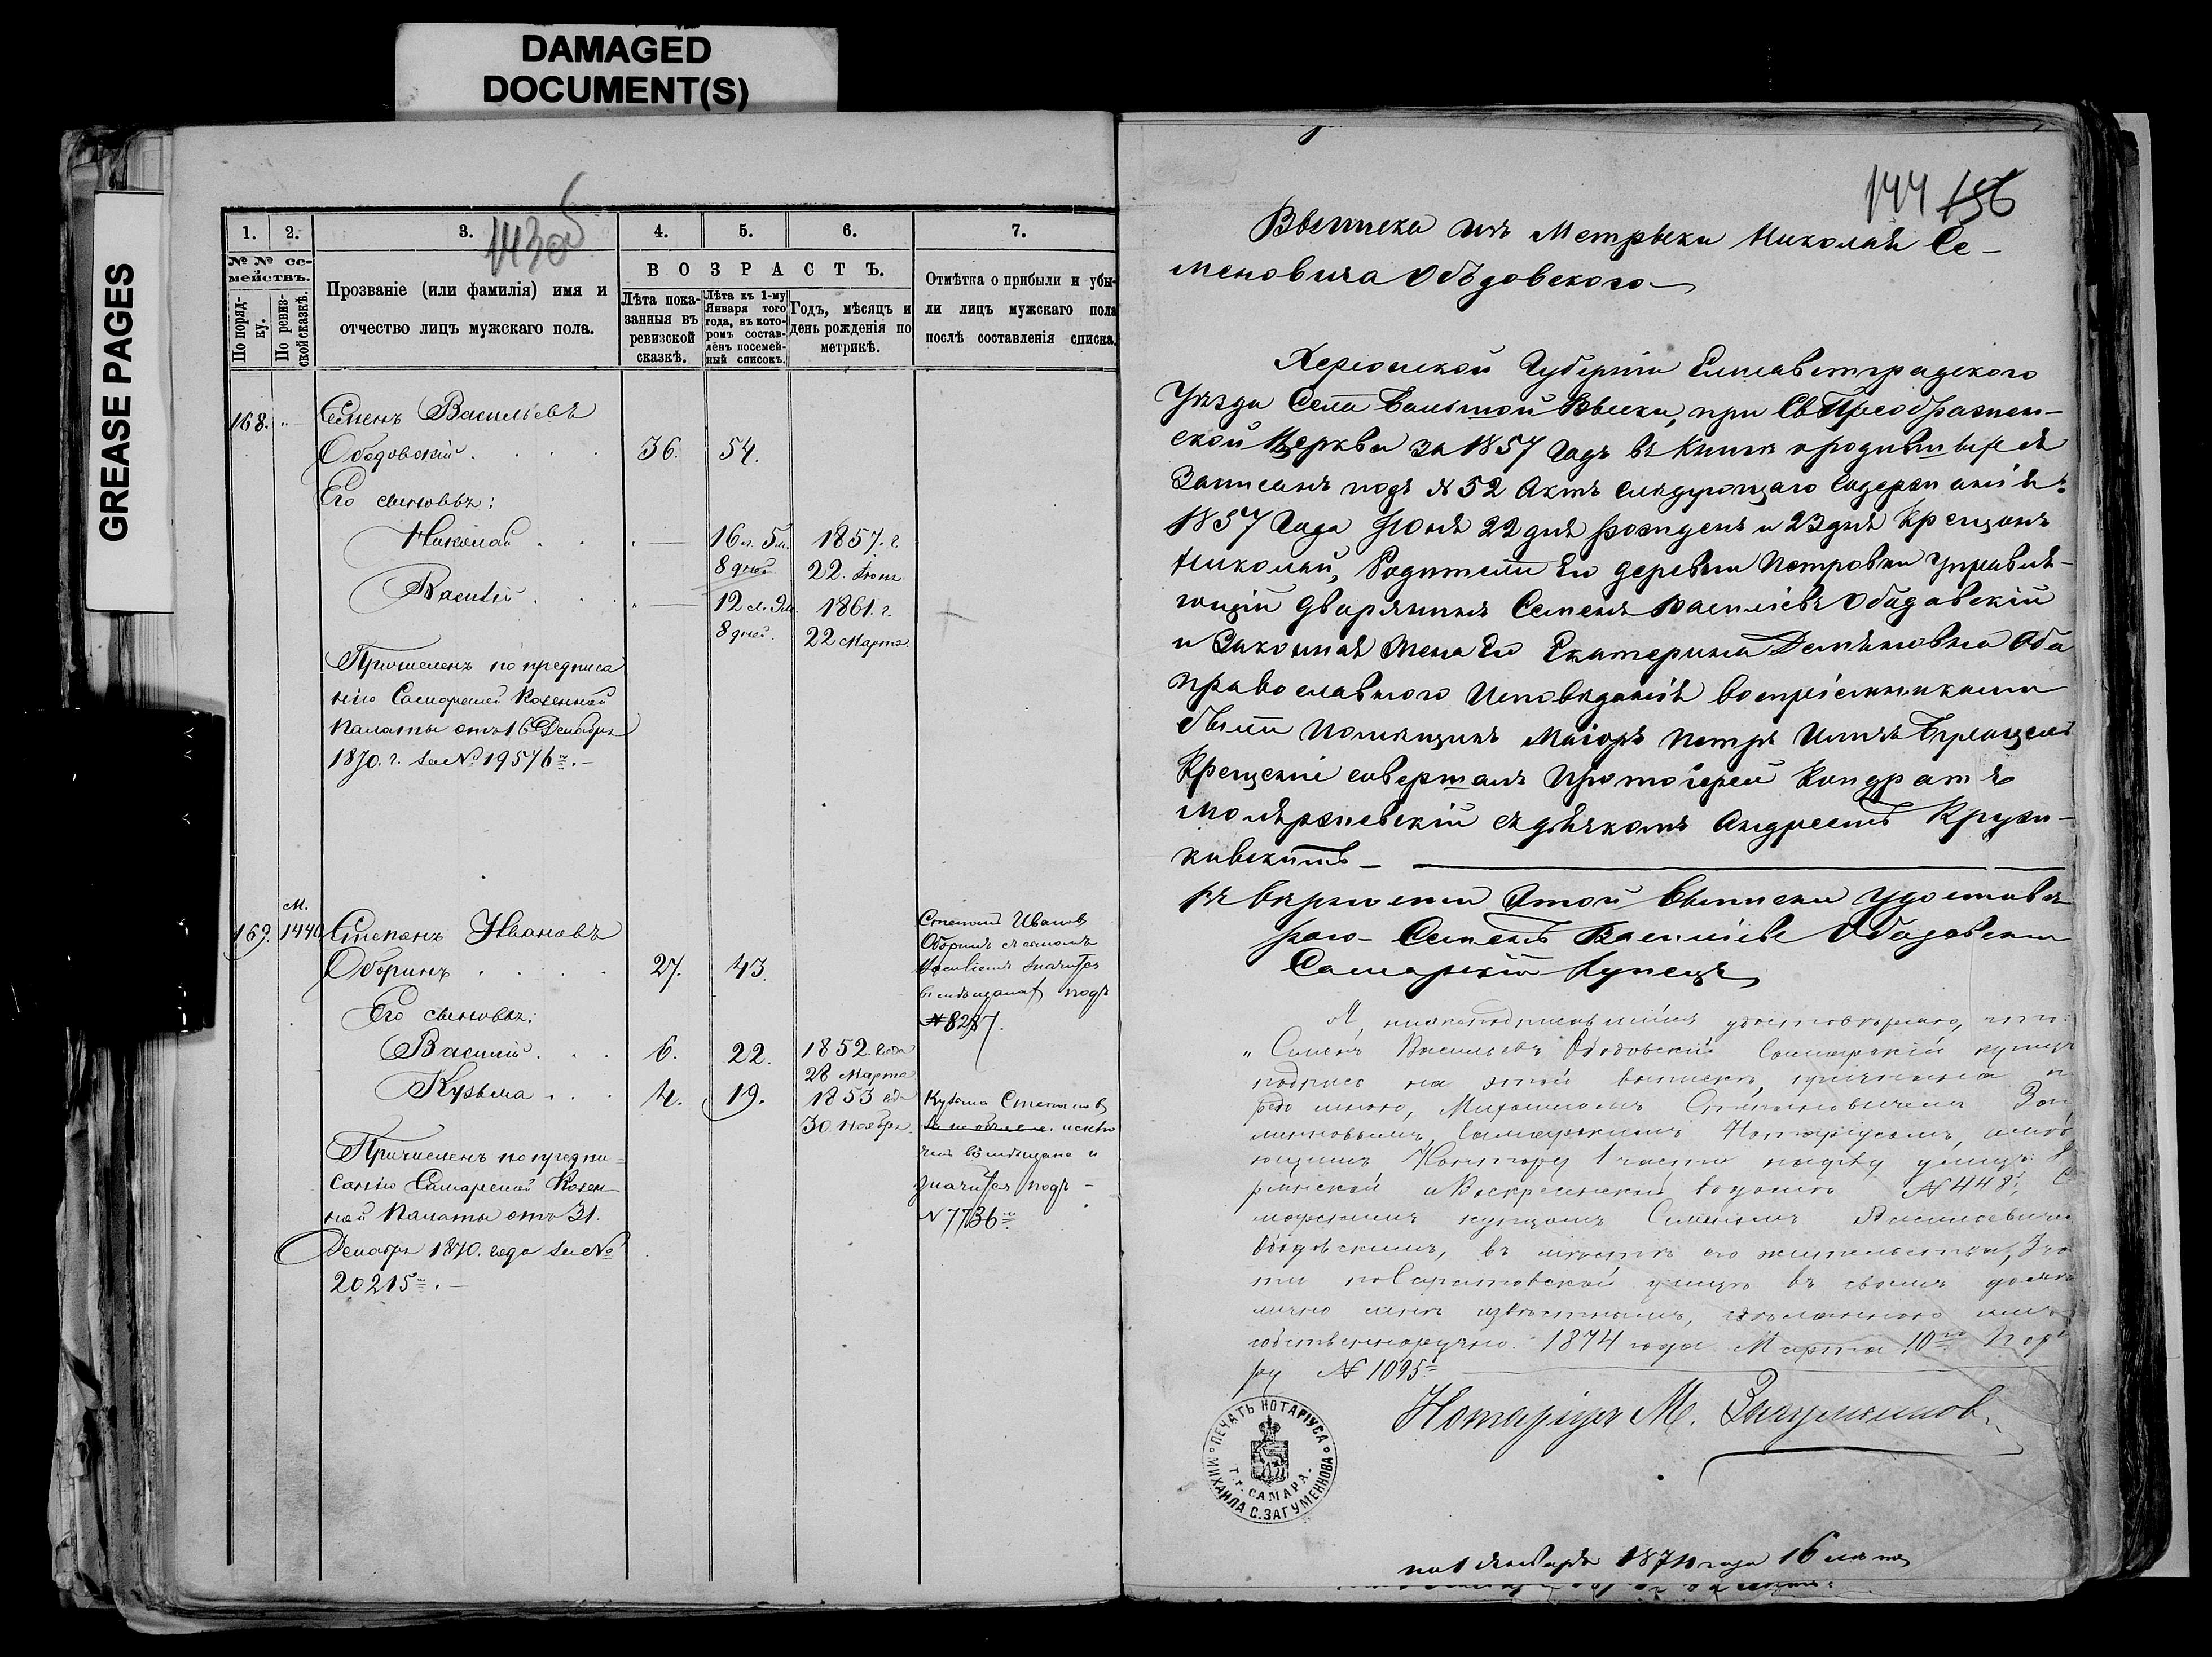 DAMAGED
DOCUMENT(S)
GREASE PAGES
143 об
1. 2. 3. 4. 5. 6. 7.
№ № се-
мействъ.
По поряд-
ку.
По ревиз-
ской сказкѣ.
Прозваніе (или фамилія) имя и
отчество лицъ мужскаго пола.
ВОЗРАСТЪ.
Лѣта пока-
занныя въ
ревизской
сказкѣ.
Лѣта къ 1-му
Января того
года, въ кото-
ромъ состав-
лёнъ посемей-
ный списокъ.
Годъ, мѣсяцъ и
день рожденія по
метрикѣ.
Отмѣтка о прибыли и убы-
ли лицъ мужскаго пола
послѣ составленія списка.
168. " Семенъ Васильевъ
Ободовскій . . . . 36. 54.
Его сыновья:
Николай . . . — 16 л. 5 м. 1857. г.
8 дней 22. Іюня
Василій . . . — 12 л. 9 м. 1861. г.
8 дней. 22 Марта.
Причисленъ по предписа
нію Самарской Казенной
Палаты отъ 16 Декабря
1870. г. за № 19576
м.
169. 1440 Степанъ Ивановъ
Оборинъ . . . . 27. 43.
Его сыновья:
Василій . . . 6. 22. 1852. года
28 Марта
Кузьма . . . 4. 19. 1853 года
30. Ноября.
Причисленъ по предпи-
санію Самарской Казен-
ной Палаты отъ 31.
Декабря 1870. года за №
20215
Степанъ Ивановъ
Оборинъ съ сыномъ
Василіемъ значится
въ мѣщанахъ подъ
№ 8287.
Кузьма Степановъ
исклю
ченъ въ мѣщане и
значится подъ -
№ 7736
144 156
Выписка изъ Метрыки Николая Се-
меновича Ободовского
Херсонской Губерніи Елисаветградского
Уѣзда Села Большой Выски, при Св Преображен-
ской Церкви за 1857 Годъ въ Книгѣ о родившыхся
Записанъ подъ № 52 Актъ слѣдующаго Содержанія:
1857 Года Іюня 22 дня рожденъ и 23 дня Крещонъ
Николай, Родители Его деревни Петровки Управля-
ющій Дворянинъ Семенъ Василіевъ Ободовскій
и Законная Жена Его Екатерина Демяновна Оба
православного Исповѣданія воспріемниками
были Помѣщикъ Маіоръ Петръ Ильичъ
Крещеніе совершалъ Протоіерей Кондратъ
съ дьячкомъ Андреемъ Круж-
ковскимъ —
Въ вѣрности Этой Выписки Удостовѣ-
ряю - Семенъ Василіевъ Ободовскій
Самарскій Купецъ
Я, нижеподписавшійся, удостовѣряю, что
"Семенъ Васильевъ Ободовскій Самарскій купецъ
подпись на этой выпискѣ, учинена
редо мною, Михаиломъ Степановичемъ Заг
менновымъ, Самарскимъ Нотаріусомъ, имѣю
щимъ Контору 1 части на углу улицъ
и Воскресенской въ домѣ № 448,
марскимъ купцомъ Семеномъ Васильевичемъ
Ободовскимъ, въ мѣстѣ его жительства,
сти по Саратовской улицѣ въ своемъ домѣ
лично мнѣ извѣстнымъ,
собственноручно. 1874 года Марта 10 По р
ру № 1095
Нотаріусъ М. Загуменновъ
ПЕЧАТЬ НОТАРІУСА
МИХАИЛА С. ЗАГУМЕННОВА
Г. Г. САМАРА.
на 1 Января 1874 года 16 лѣтъ